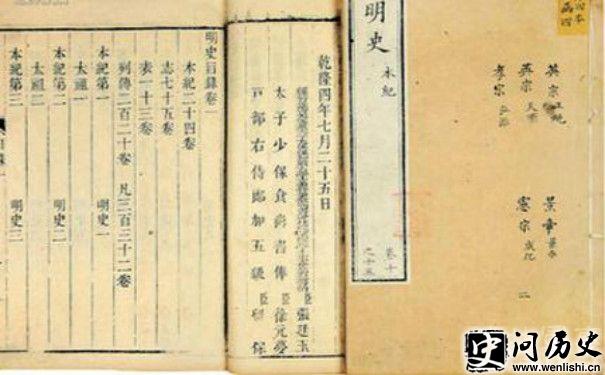 英宗 正統 景帝 景泰
英宗 天順 憲宗 成化
孝宗 弘治 二
明史 本紀
卷十
之十五
乾隆四年七月二十五日
臣張廷玉
太子少保食尚書俸臣徐元夢
戶部右侍郎加五級臣留保
明史目錄卷一
本紀二十四卷
志七十五卷
表一十三卷
列傳二百二十卷 凡三百三十二卷
本紀第一 明史一
太祖一
本紀第二 明史二
太祖二
本紀第三 明史三
问历史
www.wenlishi.cn